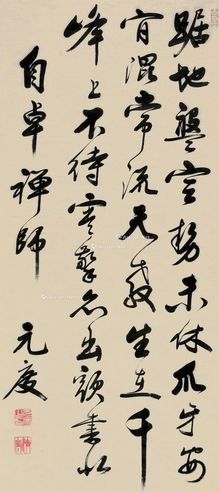 踞地盤空勢未休爪牙安
肯混常流天教生在千
峰上不待雲擎亦出頭書似
自卓禪師
元度